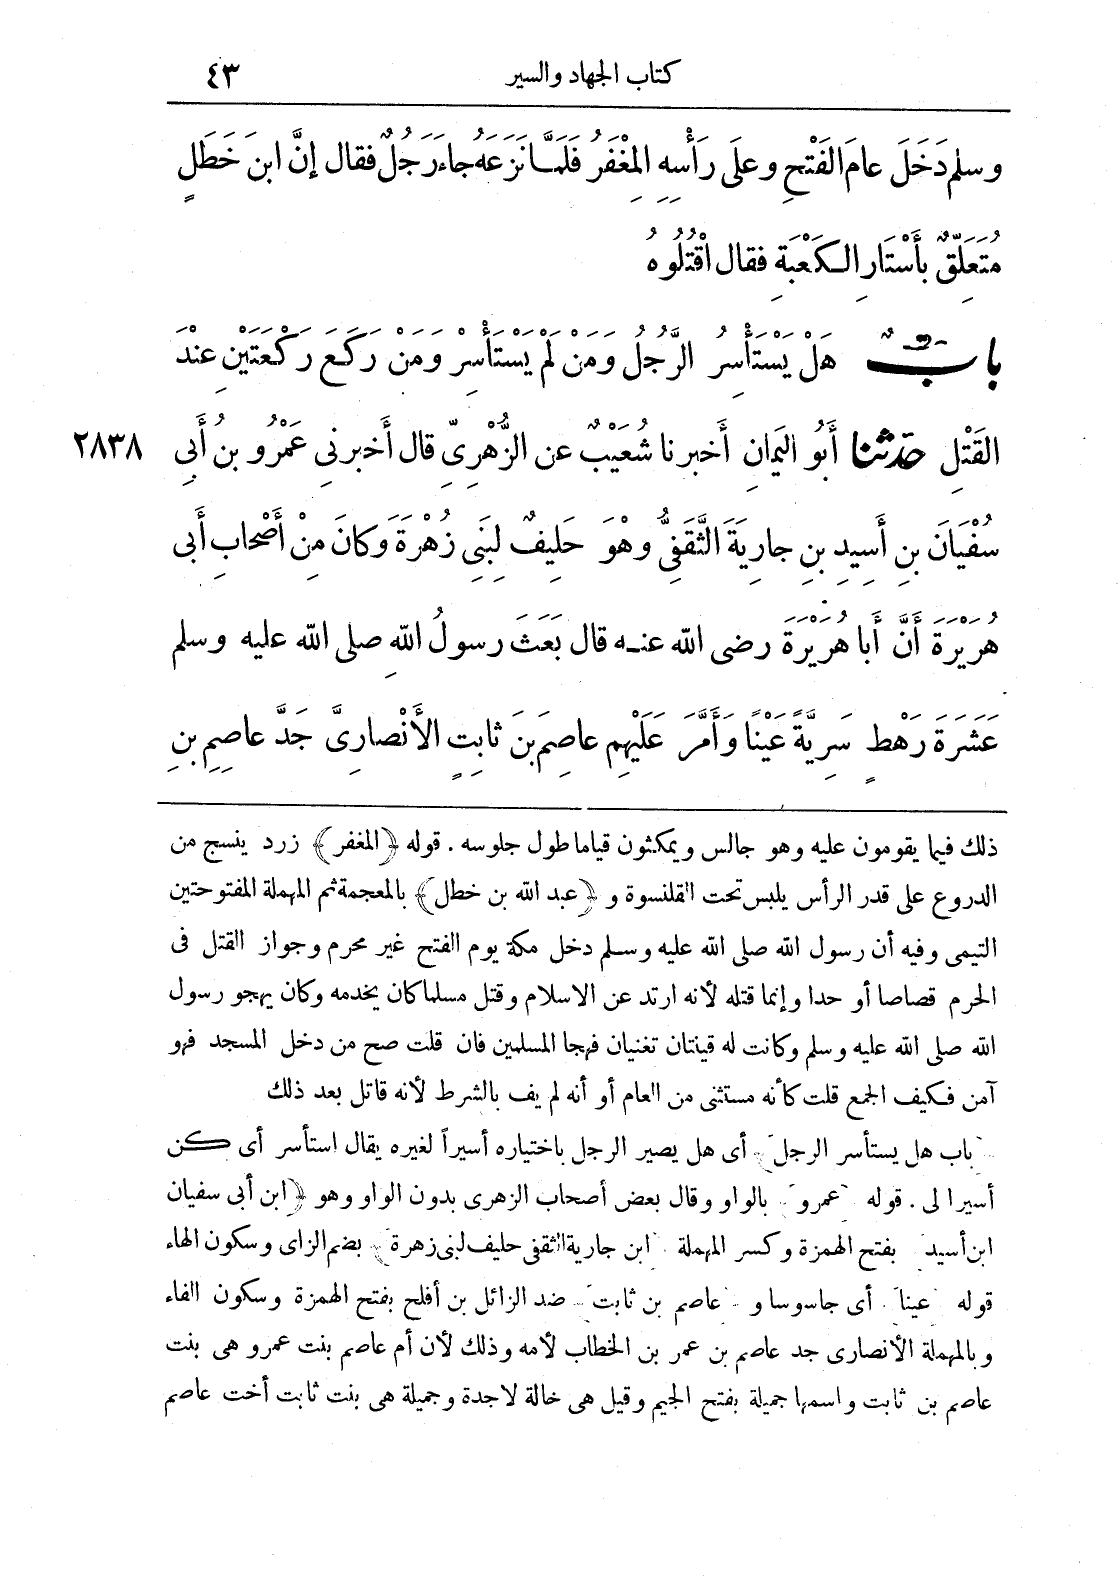 كتاب الجهاد والسير ٤٣
وسلم دَخَلَ عامَ الفَتْحِ وعلَى رَأْسِهِ المِغْفَرُ فَلَمَّا نَزَعَهُ جاءَ رَجُلٌ فقال إنَّ ابنَ خَطَلٍ
مُتَعَلِّقٌ بأَسْتَارِ الكَعْبَةِ فقال اقْتُلُوهُ
بابٌ هَلْ يَسْتَأْسِرُ الرَّجُلُ ومَنْ لَمْ يَسْتَأْسِرْ ومَنْ رَكَعَ رَكْعَتَيْنِ عِنْدَ
القَتْلِ حدّثنا أَبُو اليَمانِ أَخبرنا شُعَيْبٌ عن الزُّهْرِىِّ قال أَخبرنى عَمْرُو بنُ أَبِى ٢٨٣٨
سُفْيَانَ بنِ أَسِيدِ بنِ جارِيَةَ الثَّقَفِىُّ وهْوَ حَلِيفٌ لِبَنِى زُهْرَةَ وكانَ مِنْ أَصْحابِ أَبى
هُرَيْرَةَ أَنَّ أَبا هُرَيْرَةَ رضى الله عنه قال بَعَثَ رسولُ اللهِ صلى الله عليه وسلم
عَشَرَةَ رَهْطٍ سَرِيَّةً عَيْنًا وأَمَّرَ عَلَيْهِم عاصِمَ بنَ ثابِتٍ الأَنْصارِىَّ جَدَّ عاصِمِ بنِ
ذلك فيما يقومون عليه وهو جالس ويمكثون قياما طول جلوسه . قوله ﴿المغفر﴾ زرد ينسج من
الدروع على قدر الرأس يلبس تحت القلنسوة و ﴿عبد الله بن خطل﴾ بالمعجمة ثم المهملة المفتوحتين
التيمى وفيه أن رسول الله صلى الله عليه وسلم دخل مكة يوم الفتح غير محرم وجواز القتل فى
الحرم قصاصا أو حدا وإنما قتله لأنه ارتد عن الاسلام وقتل مسلما كان يخدمه وكان يهجو رسول
الله صلى الله عليه وسلم وكانت له قينتان تغنيان فهجا المسلمين فان قلت صح من دخل المسجد فهو
آمن فكيف الجمع قلت كأنه مستثنى من العام أو أنه لم يف بالشرط لأنه قاتل بعد ذلك
﴿باب هل يستأسر الرجل﴾ أى هل يصير الرجل باختياره أسيراً لغيره يقال استأسر أى كن
أسيرا لى . قوله ﴿عمرو﴾ بالواو وقال بعض أصحاب الزهرى بدون الواو وهو ﴿ابن أبى سفيان
ابن أسيد﴾ بفتح الهمزة وكسر المهملة ﴿ابن جارية الثقفى حليف لبنى زهرة﴾ بضم الزاى وسكون الهاء
قوله ﴿عينا﴾ أى جاسوسا و ﴿عاصم بن ثابت﴾ ضد الزائل بن أفلح بفتح الهمزة وسكون الفاء
وبالمهملة الأنصارى جد عاصم بن عمر بن الخطاب لأمه وذلك لأن أم عاصم بنت عمرو هى بنت
عاصم بن ثابت واسمها جميلة بفتح الجيم وقيل هى خالة لاجدة وجميلة هى بنت ثابت أخت عاصم